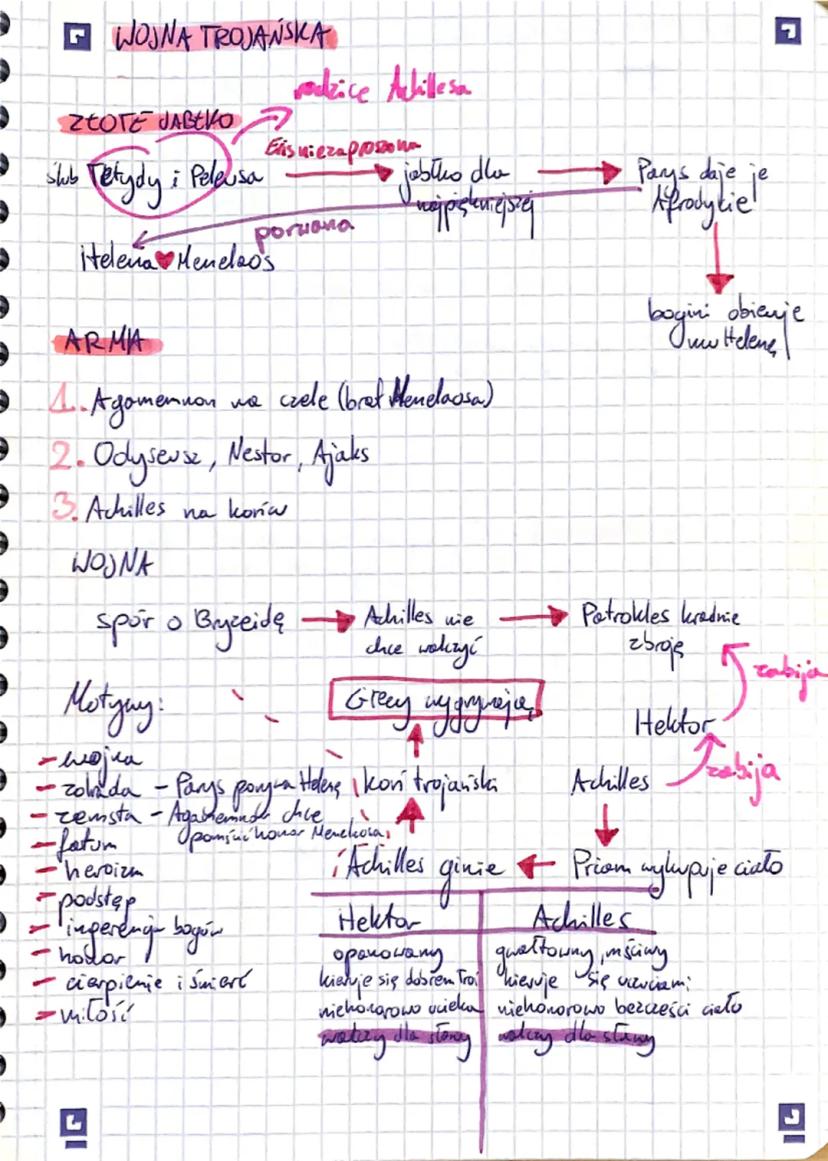 WOJNA TROJAŃSKA
rodzice Achillesa
ZŁOTE JABŁKO
Eris niezaproszona
ślub Tetydy i Peleusa
jabłko dla
najpiękniejszej
Parys daje je
Afrodycie
porwana
Helena ♥ Menelaos
bogini obiecuje
mu Helenę
ARMIA
1. Agamemnon na czele (brat Menelaosa)
2. Odyseusz, Nestor, Ajaks
3. Achilles na końcu
WOJNA
spór o Bryzeidę
Achilles nie
chce walczyć
Patrokles kradnie
zbroję
zabija
Hektor
zabija
Achilles
Priam wykupuje ciało
Achilles ginie
koń trojański
Grecy wygrywają
Motywy:
- wojna
- zdrada - Parys porywa Helenę
- zemsta - Agamemnon chce
pomścić honor Menelaosa
- fatum
- heroizm
- podstęp
- ingerencja bogów
- honor
- cierpienie i śmierć
- miłość
Hektor
opanowany
kieruje się dobrem Troi
niehonorowo ucieka
walczy dla sławy
Achilles
gwałtowny, mściwy
kieruje się uczuciami
niehonorowo bezcześci ciało
walczy dla sławy